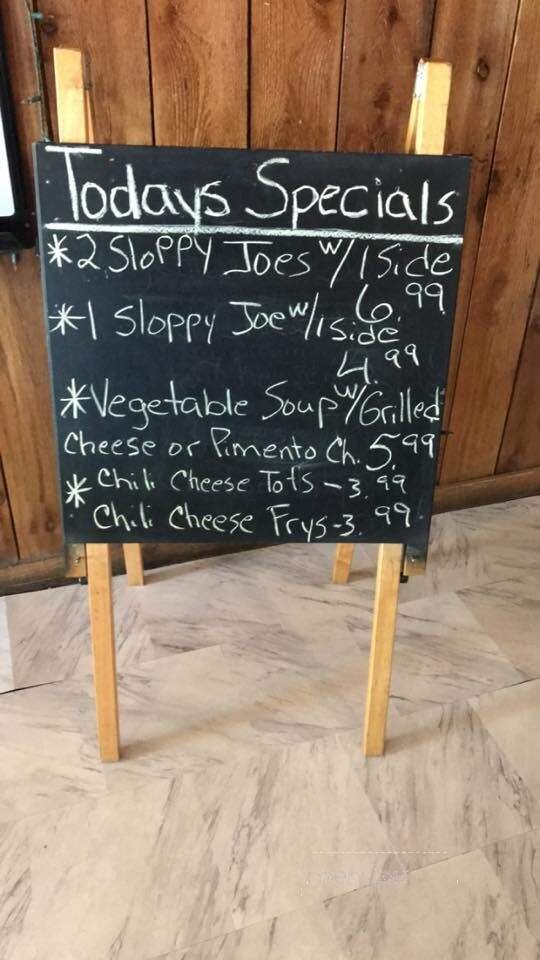 Todays Specials
* 2 Sloppy Joes w/ 1 Side
6.99
* 1 Sloppy Joe w/ 1 side
4.99
* Vegetable Soup w/ Grilled
Cheese or Pimento Ch. 5.99
* Chili Cheese Tots - 3.99
Chili Cheese Frys - 3.99